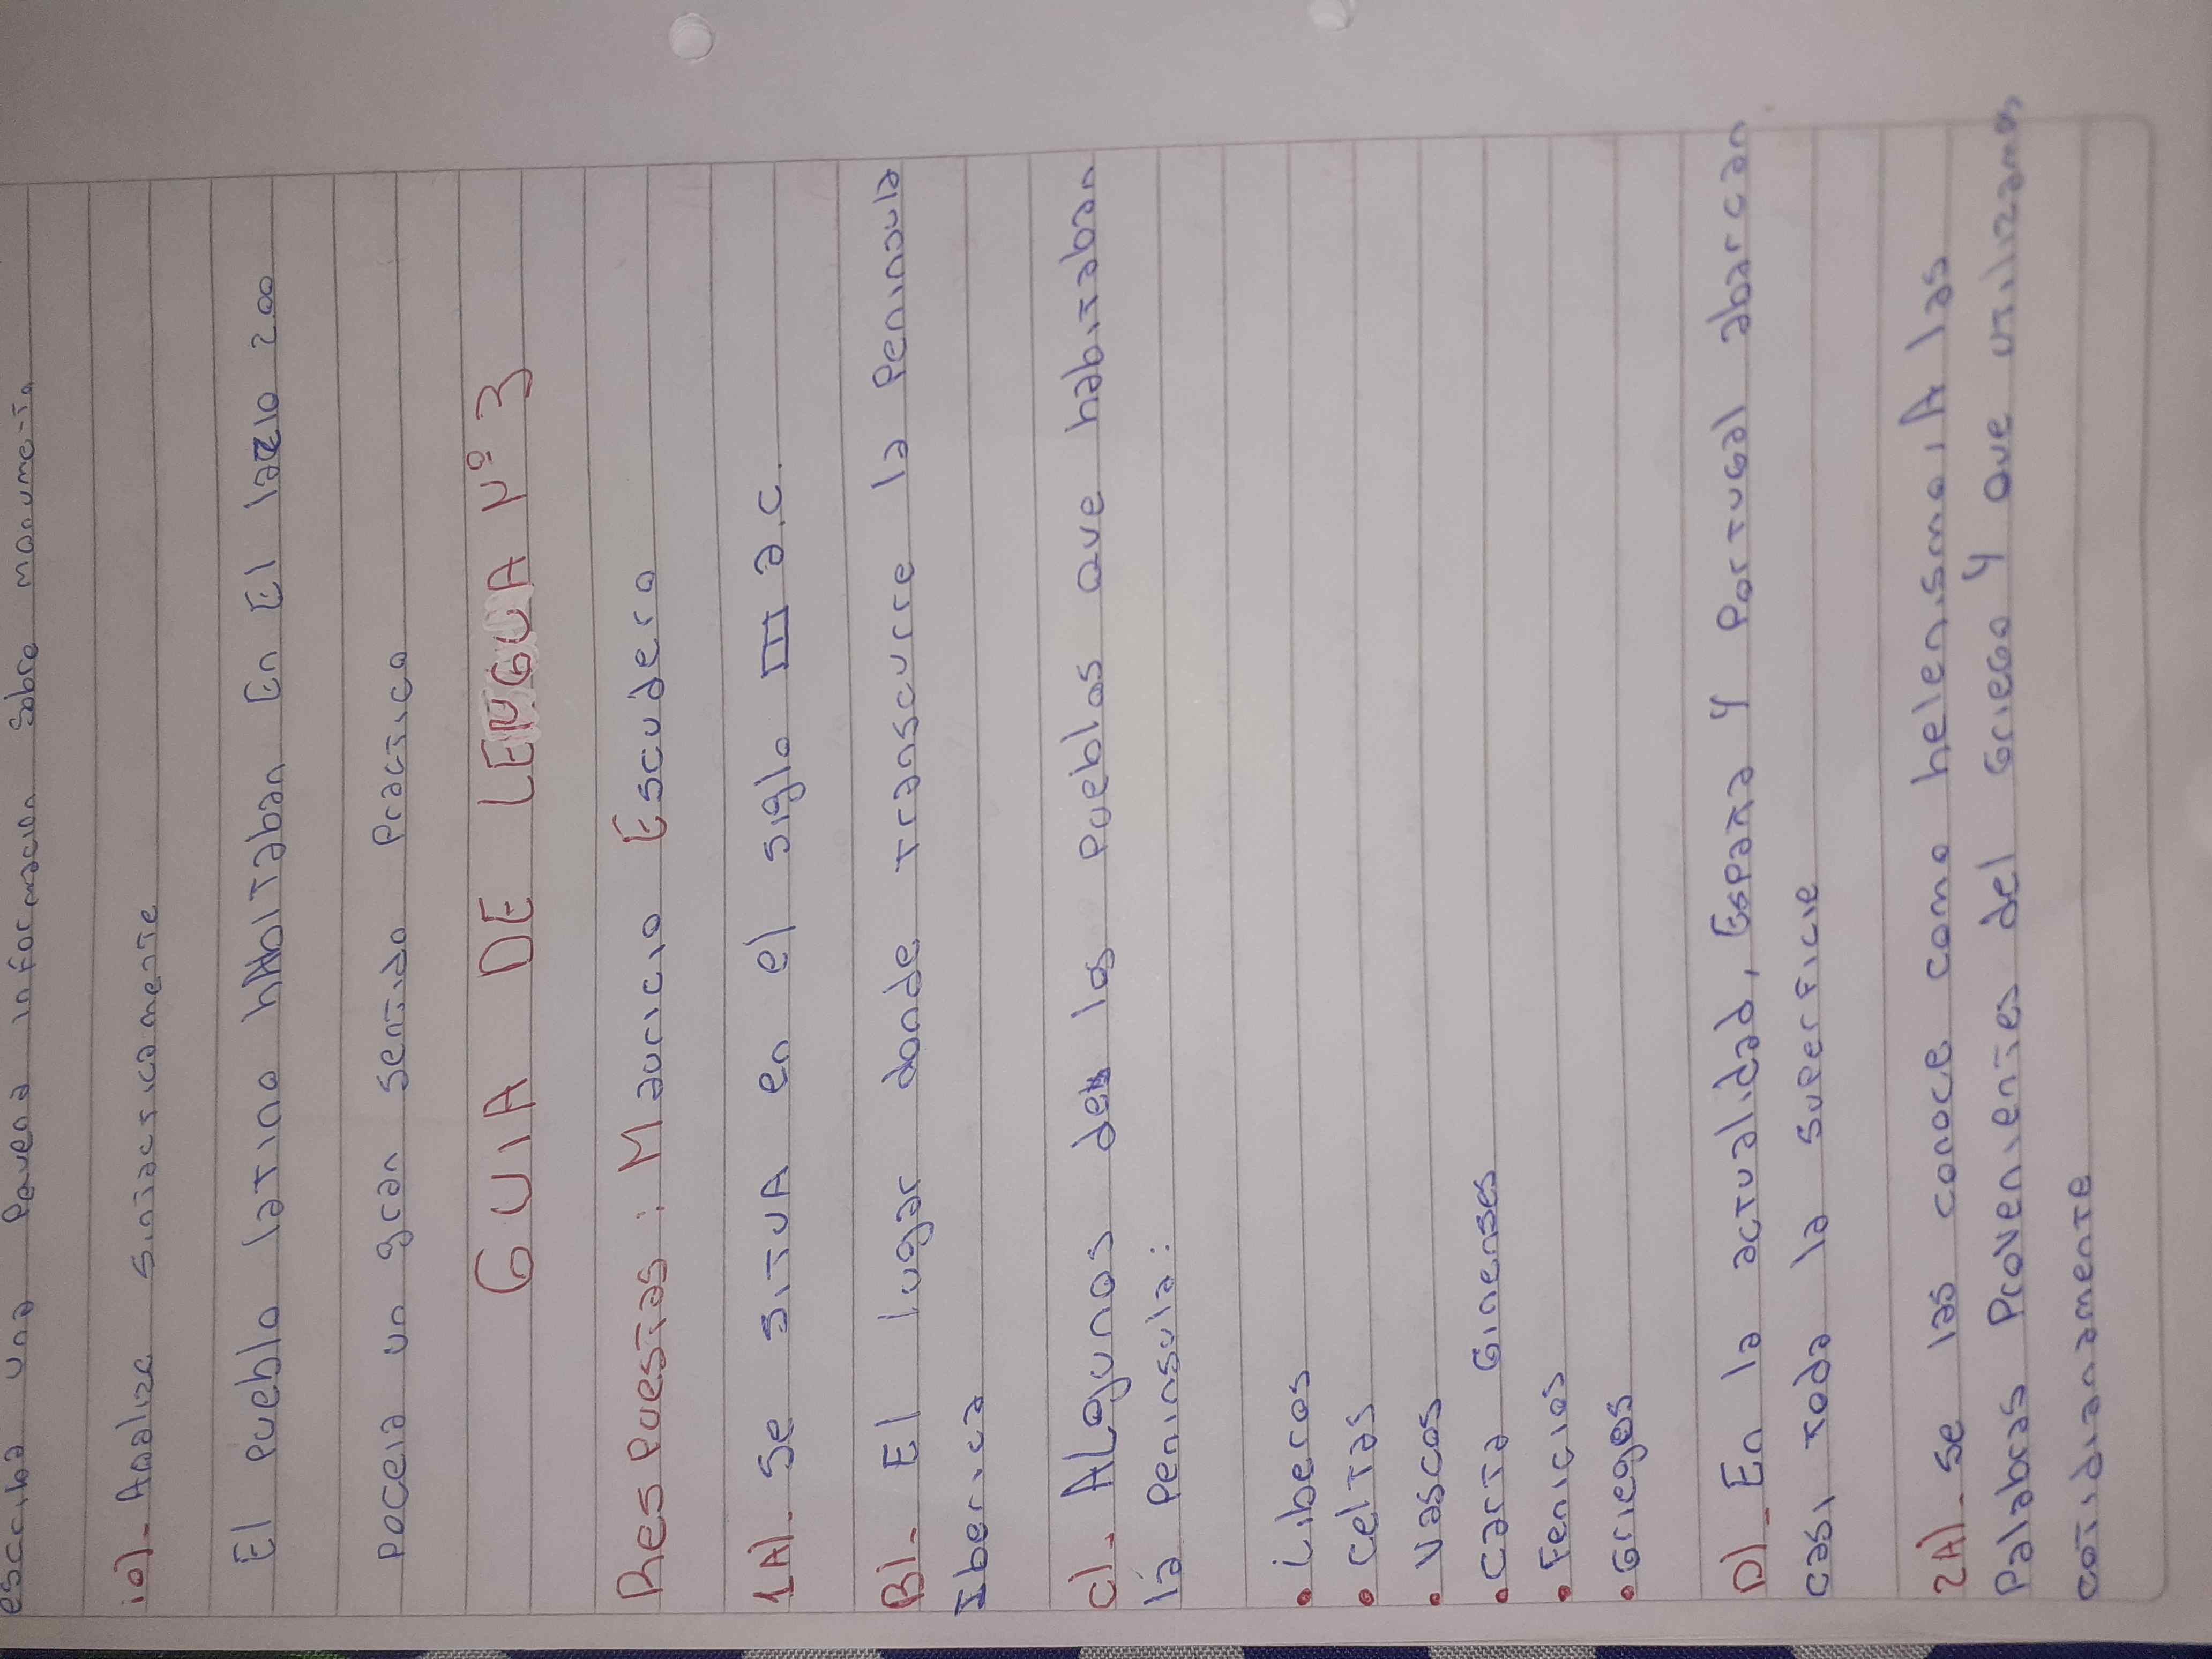 escriba una Pequena informacion sobre monumento
10)- Analize sintacsicamente
El pueblo latino hAbITaban En El lazio 200
poceia un gran sentido Practico
GUIA DE LENGUA Nº 3
Respuestas: Mauricio Escudero
1A)- Se sitUA en el siglo III a.c.
B)- El lugar donde transcurre la Peninoula
Iberica
c)- ALgunos de los pueblos Que habitaban
la Peninsula:
• Liberos
• celtas
• vascos
• carta Ginenses
• Fenicios
• Griegos
D)- En la actualidad, España y Portugal abarcan
casi toda la superficie
2A)- se las conoce como helenismo, A las
Palabras Provenientes del Griego y Que utilizamos
cotidianamente